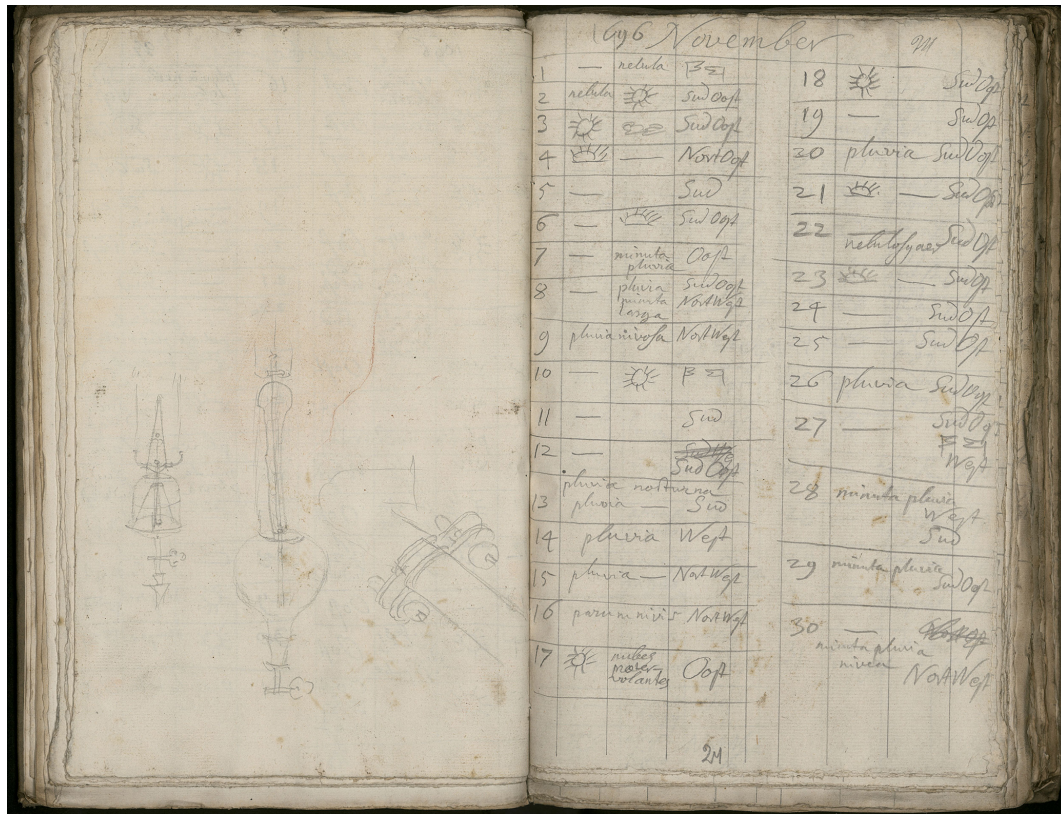 1696 November
1 — nebula
2 nebula Sud Oost
3 Sud Oost
4 — Nort Oost
5 — Sud
6 — Sud Oost
7 — minuta Oost
pluvia
8 — pluvia Sud Oost
minuta Nort West
larga
9 pluvia nivosa Nort West
10 —
11 — Sud
12 —
Sud Oost
pluvia nocturna
13 pluvia — Sud
14 pluvia West
15 pluvia — Nort West
16 parum nivis Nort West
17 nubes Oost
volantes
18 Sud Ost
19 — Sud Ost
20 pluvia Sud Oost
21 — Sud Ost
22 — Sud Ost
23 — Sud Ost
24 — Sud Ost
25 — Sud Ost
26 pluvia Sud Ost
27 — Sud Ost
West
28 minuta pluvia
West
Sud
29 minuta pluvia
Sud Ost
30 —
minuta pluvia
nivea
Nort West